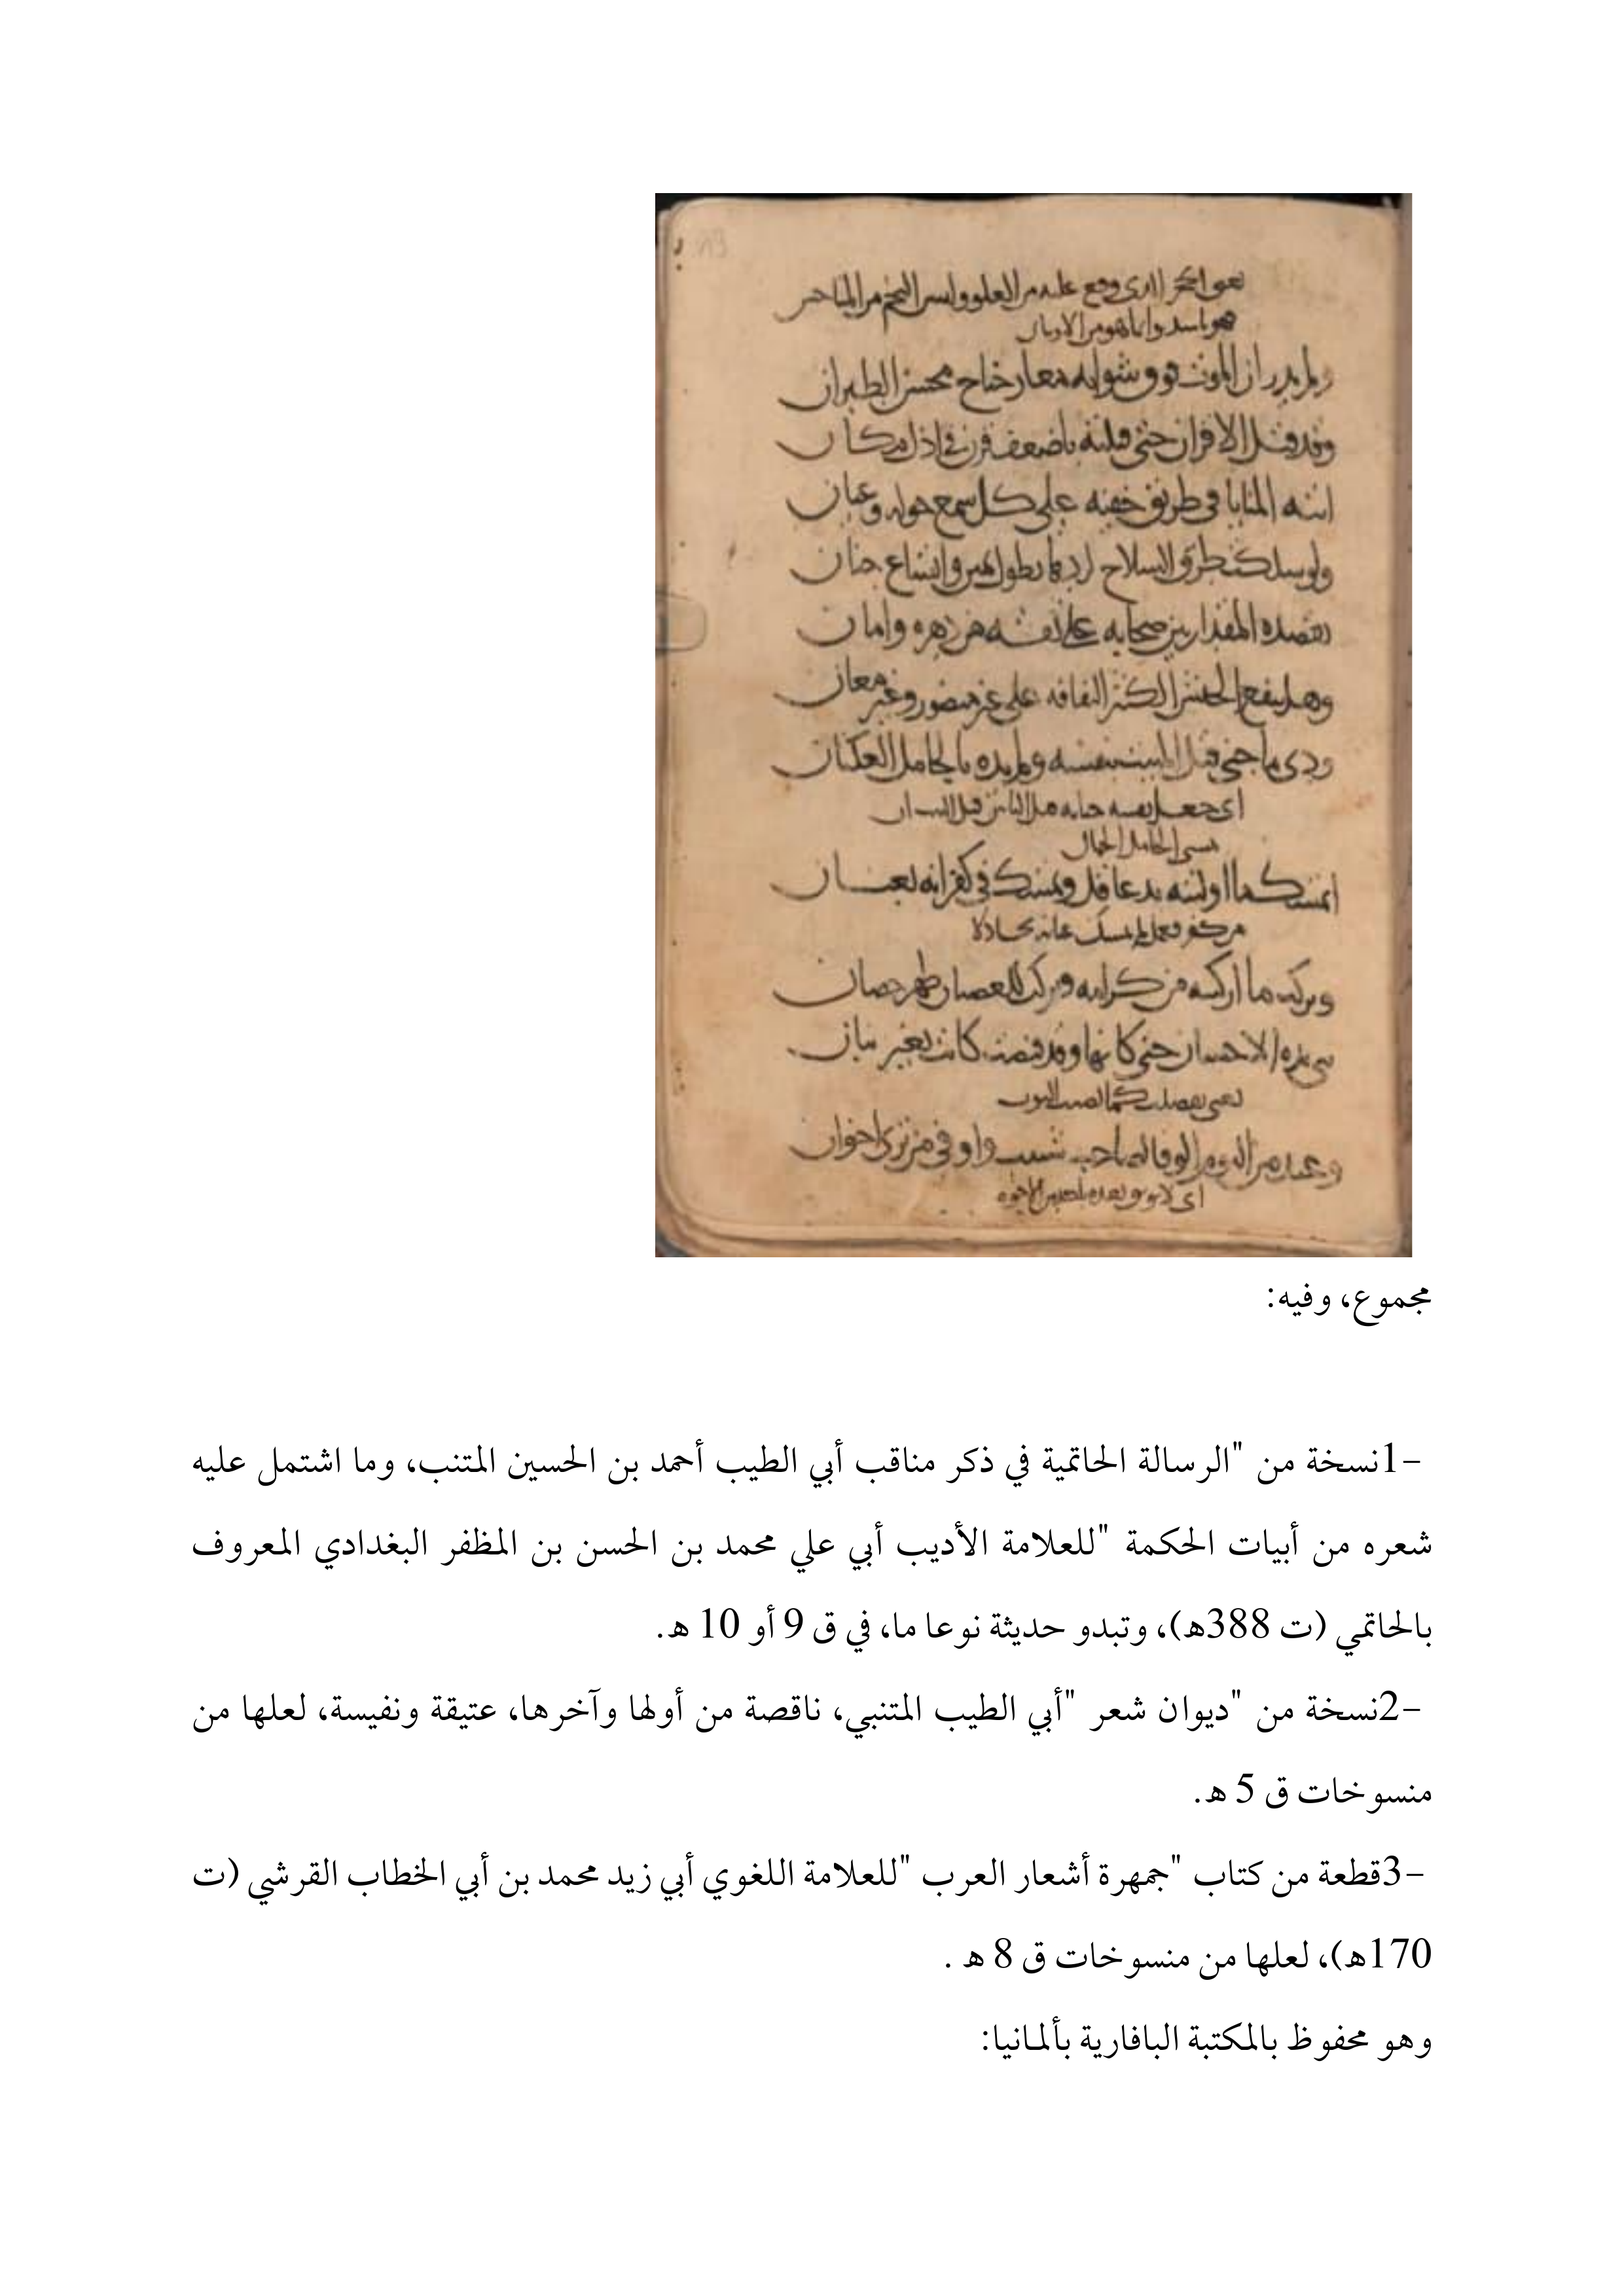 ولم يدر ان الموت فوق شواته معار جناح محسن الطيران
وقد قتل الاقران حتى قتلته باضعف قرن في اذل مكان
اتته المنايا في طريق خفية على كل سمع حوله وعيان
ولو سلكت طرق السلاح لردها بطول يمين واتساع جنان
تقصده المقدار بين صحابه على ثقة من دهره وامان
وهل ينفع الجيش الكثير التفافه على غير منصور وغير معان
ودى ما جنى قبل المبيت بنفسه ولم يده بالجامل العكنان
اتمسك ما اوليته يد عاقل وتمسك في كفرانه بعنان
ويركب ما اركبته من كرامة ويركب للعصيان ظهر حصان
الاحسان حتى كانها وقد قبضت كانت بغير بنان
وعند من اليوم الوفا لصاحب شبيب واوفى من ترى اخوان
مجموع، وفيه:
-1نسخة من "الرسالة الحاتمية في ذكر مناقب أبي الطيب أحمد بن الحسين المتنب، وما اشتمل عليه
شعره من أبيات الحكمة "للعلامة الأديب أبي علي محمد بن الحسن بن المظفر البغدادي المعروف
بالحاتمي (ت 388هـ)، وتبدو حديثة نوعا ما، في ق 9 أو 10 هـ.
-2نسخة من "ديوان شعر "أبي الطيب المتنبي، ناقصة من أولها وآخرها، عتيقة ونفيسة، لعلها من
منسوخات ق 5 هـ.
-3قطعة من كتاب "جمهرة أشعار العرب "للعلامة اللغوي أبي زيد محمد بن أبي الخطاب القرشي (ت
170هـ)، لعلها من منسوخات ق 8 هـ .
وهو محفوظ بالمكتبة البافارية بألمانيا: